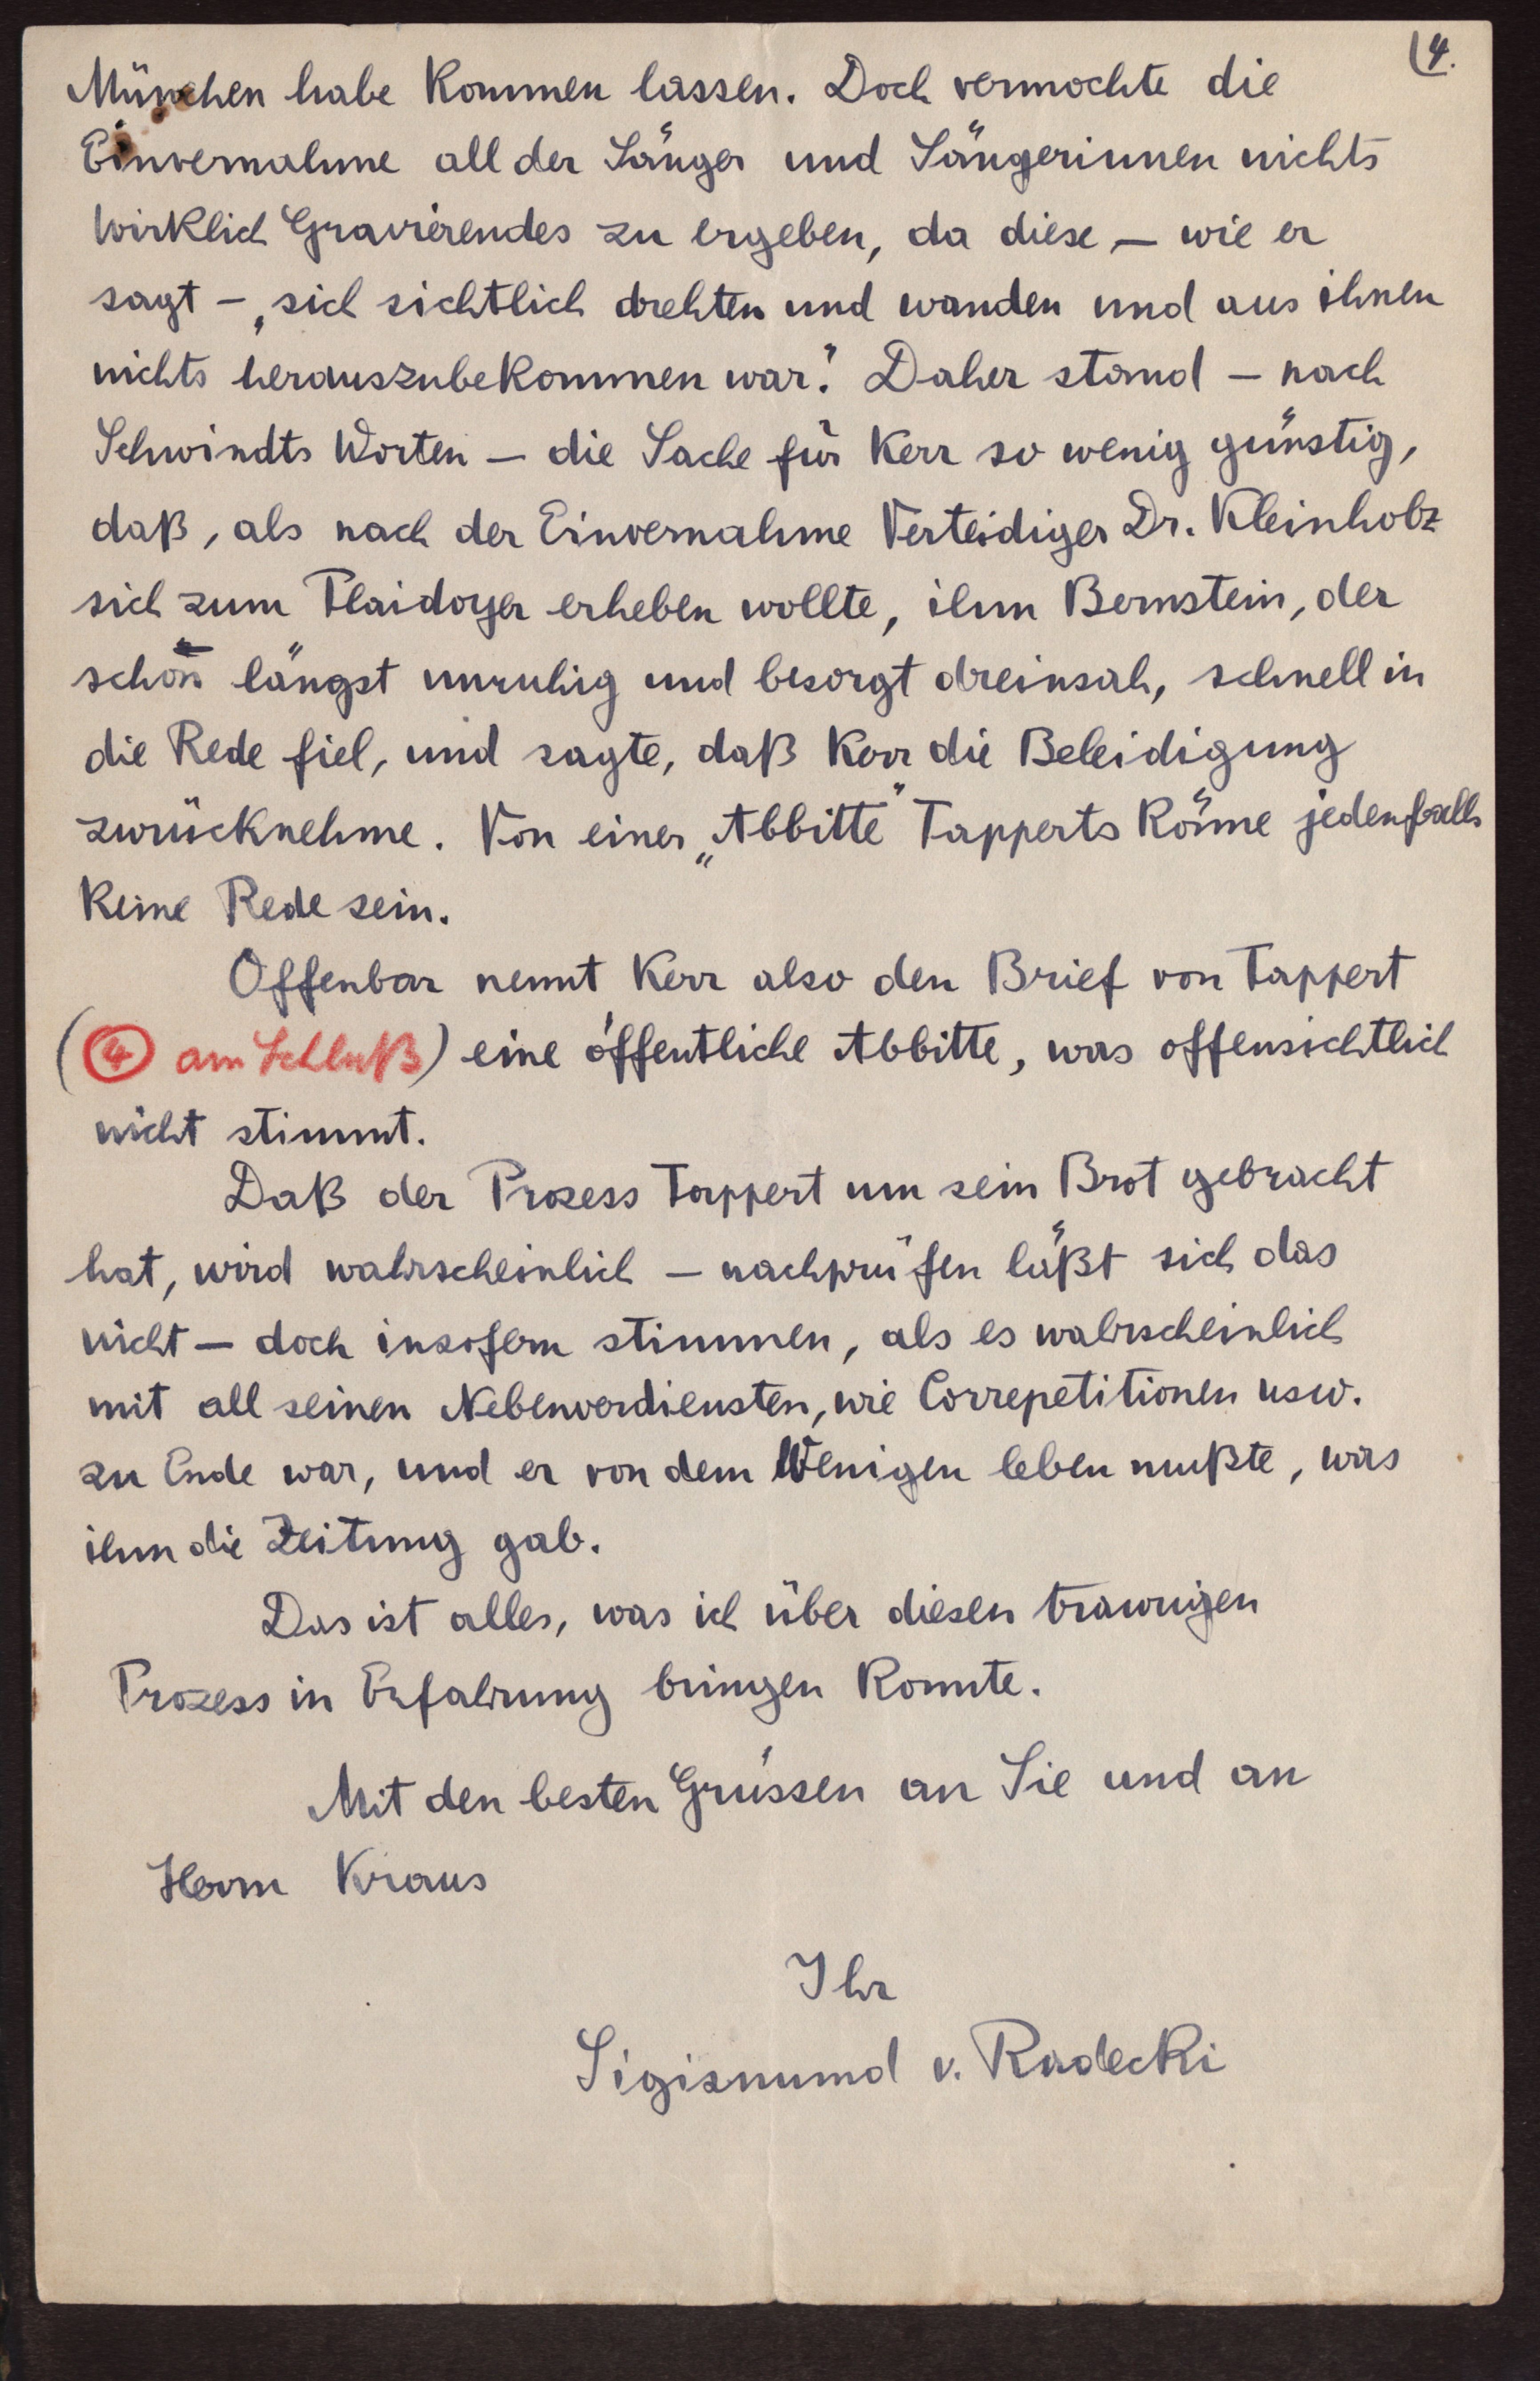 (4.
München habe kommen lassen. Doch vermochte die
Einvernahme all der Sänger und Sängerinnen nichts
wirklich Gravierendes zu ergeben, da diese – wie er
sagt – „sich sichtlich drehten und wanden und aus ihnen
nichts herauszubekommen war." Daher stand – nach
Schwindts Worten – die Sache für Kerr so wenig günstig,
daß, als nach der Einvernahme Verteidiger Dr. Kleinholz
sich zum Plaidoyer erheben wollte, ihm Bernstein, der
schon längst unruhig und besorgt dreinsah, schnell in
die Rede fiel, und sagte, daß Kerr die Beleidigung
zurücknehme. Von einer „Abbitte" Tapperts könne jedenfalls
keine Rede sein.
Offenbar nennt Kerr also den Brief von Tappert
(④ am Schluß) eine öffentliche Abbitte, was offensichtlich
nicht stimmt.
Daß der Prozess Tappert um sein Brot gebracht
hat, wird wahrscheinlich – nachprüfen läßt sich das
nicht – doch insofern stimmen, als es wahrscheinlich
mit all seinen Nebenverdiensten, wie Correpetitionen usw.
zu Ende war, und er von dem Wenigen leben mußte, was
ihm die Zeitung gab.
Das ist alles, was ich über diesen traurigen
Prozess in Erfahrung bringen konnte.
Mit den besten Grüssen an Sie und an
Herrn Kraus
Ihr
Sigismund v. Radecki